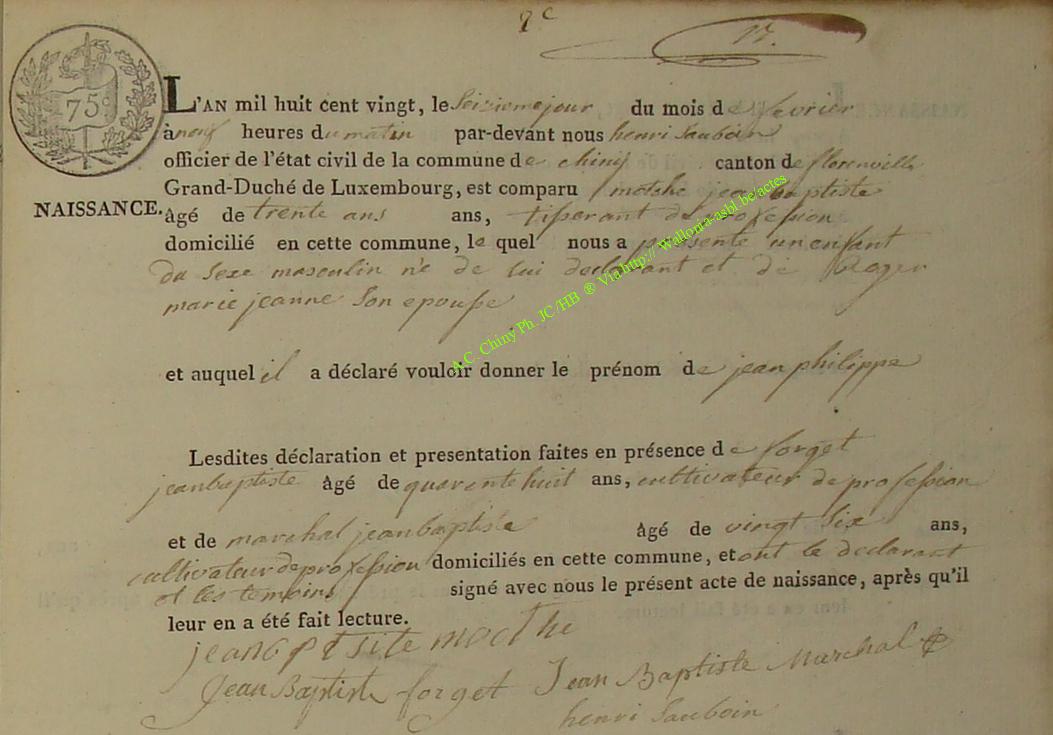 9e
17.
75c
L'AN mil huit cent vingt, le seisieme jour du mois de fevrier
à neuf heures du matin par-devant nous henri Sauboin
officier de l'état civil de la commune de chiny canton de florenville
Grand-Duché de Luxembourg, est comparu mothe jean baptiste
NAISSANCE.
âgé de trente ans ans, tisserant de profession
domicilié en cette commune, le quel nous a présenté un enfant
du sexe masculin né de lui declarant et de Roger
marie jeanne son epousse
et auquel il a déclaré vouloir donner le prénom de jean philippe
Lesdites déclaration et presentation faites en présence de forget
jean baptiste âgé de quarente huit ans, cultivateur de profession
et de marchal jean baptiste âgé de vingt six ans,
cultivateur de profession domiciliés en cette commune, et ont le declarant
et les temoins signé avec nous le présent acte de naissance, après qu'il
leur en a été fait lecture.
jean mothe
Jean Baptiste forget Jean Baptiste Marchal
henri Sauboin
A.C. Chiny Ph. JC/HB ® Via http:// Wallonia-asbl.be/actes